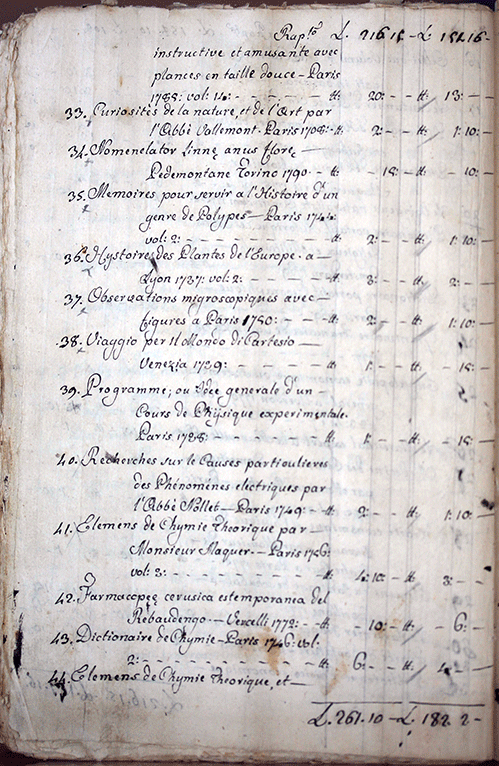 Rap.to L. 216.15 - L. 152.16 -
instructive et amusante avec
plances en taille douce - Paris
1788: vol: 14: - - - - - - - - tt: 20: - - tt: 13: - -
33. Curiosités de la nature, et de l'Art par
l'Abbé Vallemont. Paris 1708: - tt: 2: - - tt: 1: 10: -
34. Nomenclator Linneanus Florę
Pedemontane Torino 1790. - tt: - 15: - tt: - 10: -
35. Memoires pour servir a l'Histoire d'un
genre de Polypes - Paris 1744:
vol: 2: - - - - - - - - - tt: 2: - - tt: 1: 10: -
36. Hystoire des Plantes de l'Europe. a -
Lyon 1737: vol: 2: - - - - - tt: 3: - - tt: 2: - -
37. Observations migroscopiques avec -
figures a Paris 1750: - - - tt: 2: - - tt: 1: 10: -
38. Viaggio per Il Mondo di Cartesio -
Venezia 1739: - - - - - - tt: 1: - - tt: - 15: -
39. Programme, ou Idée generale d'un -
Cours de Physique experimentale.
Paris 1738: - - - - - - - tt: 1: - - tt: - 15: -
40. Recherches sur le Causes particulieres
des Phénomènes electriques par
l'Abbé Nollet - Paris 1749: - - tt: 2: - - tt: 1: 10: -
41. Elemens de Chymie Theorique par -
Monsieur Maquer. - Paris 1756:
vol: 3: - - - - - - - - - tt: 4: 10: - tt: 3: - -
42. Farmacopeę cerusica estemporanea del
Rebaudengo - Vercelli 1772: - - - 10: - tt: - 6: -
43. Dictionaire de Chymie - Paris 1746: vol.
2: - - - - - - - - - - - tt: 6: - - tt: 4: - -
44. Elemens de Chymie Theorique, et -
L. 261.10 - L. 182. 2 -